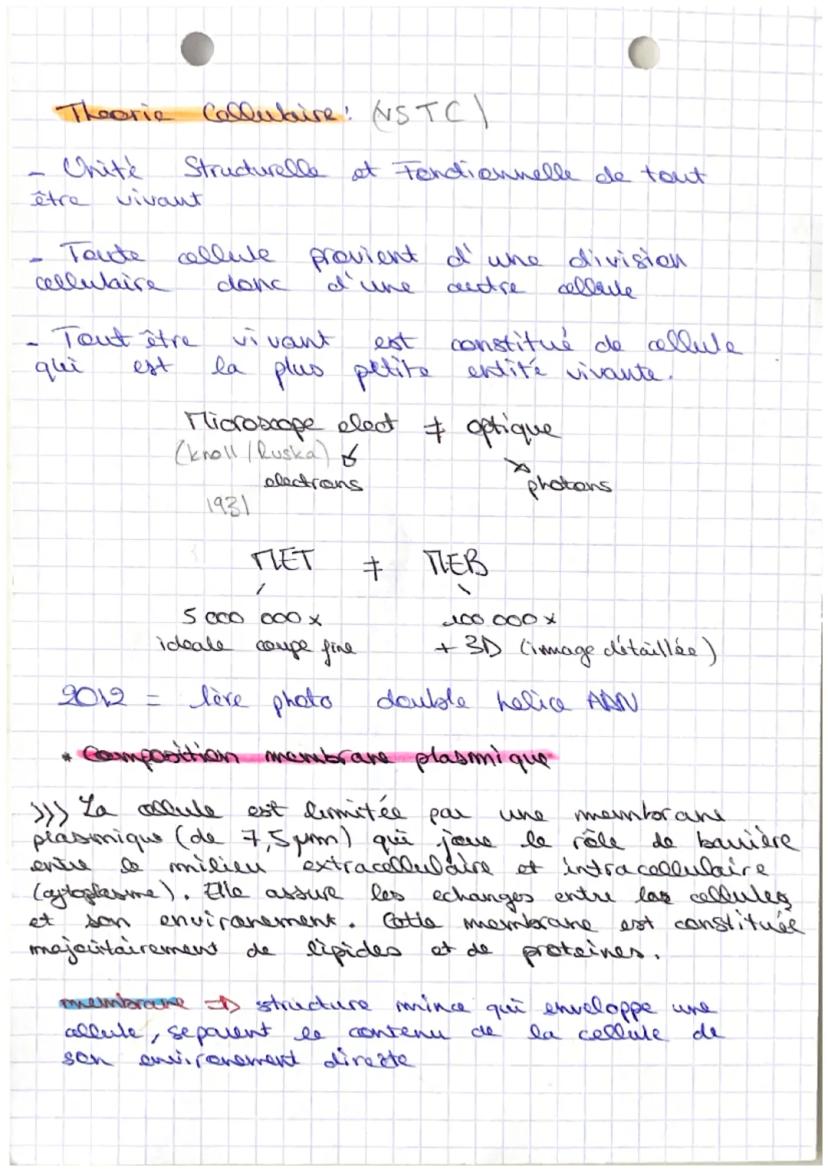 Theorie Cellulaire: (VSTC)
- Unité Structurelle et Fonctionnelle de tout
être vivant
- Toute cellule provient d'une division
cellulaire donc d'une autre cellule
- Tout être vivant est constitué de cellule
qui est la plus petite entité vivante.
Microscope elect ≠ optique
(Knoll / Ruska)
electrons photons
1931
MET ≠ MEB
5 000 000 x 100 000 x
ideale coupe fine + 3D (image détaillée)
2012 = 1ère photo double helice ADN
* Composition membrane plasmique
>>> La cellule est limitée par une membrane
plasmique (de 7,5 µm) qui joue le rôle de barrière
entre le milieu extracellulaire et intracellulaire
(cytoplasme). Elle assure les echanges entre les cellules
et son environement. Cette membrane est constituée
majoritairement de lipides et de proteines.
membrane => structure mince qui enveloppe une
cellule, separent le contenu de la cellule de
son environement directe